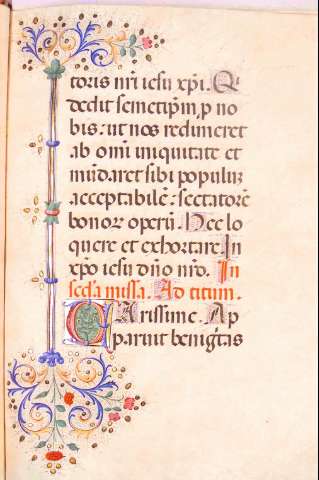 toris nr̄i iesu xp̄i. Q
dedit semetip̄m, p no
bis: ut nos redimeret
ab omi iniquitate et
mūdaret sibi populuꝫ
acceptabilē: sectatorē
bonoꝝ operū. Hec lo
quere et exhortare. In
xp̄o iesu dn̄o nr̄o. In
scd̄a missa. Ad titum.
CArissime. Ap
paruit beniḡtas